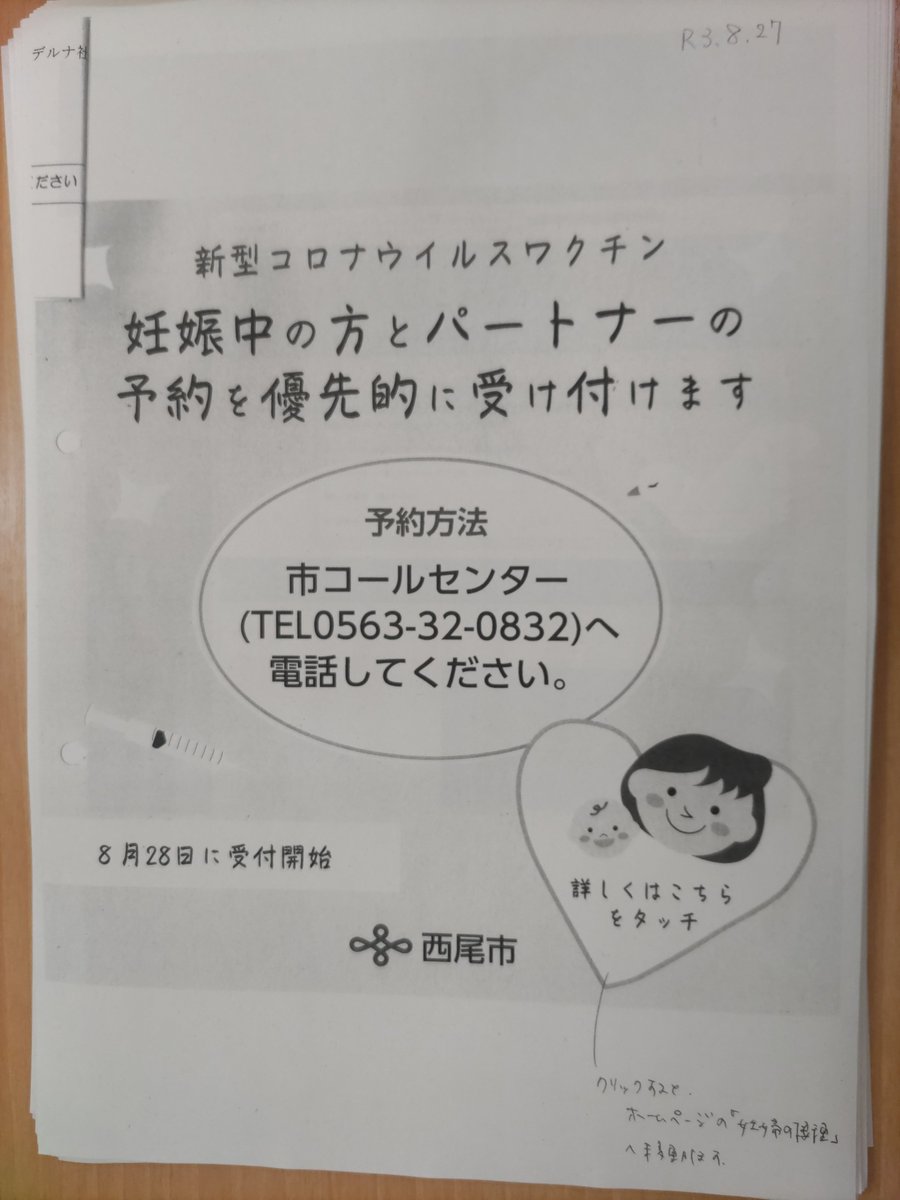 デルナ社
R3.8.27
ださい
新型コロナウイルスワクチン
妊娠中の方とパートナーの
予約を優先的に受け付けます
予約方法
市コールセンター
(TEL0563-32-0832)へ
電話してください。
8月28日に受付開始
詳しくはこちら
をタッチ
西尾市
クリックすると、
ホームページの「妊婦の接種」
へ移動します。